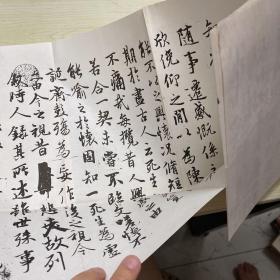 隨事遷感慨係
欣俛仰之間以為陳
能不以之興懷況脩短
期於盡古人云死生
不痛哉每攬昔人興
若合一契未嘗不臨文嗟悼
能喻之於懷固知一死為虛
誕齊彭殤為妄作後之視今
由今之視昔悲夫故列
敘時人錄其所述雖世殊事